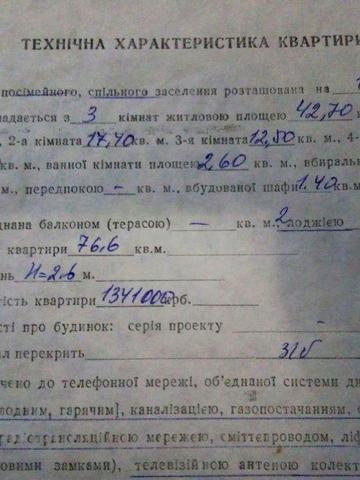 ТЕХНІЧНА ХАРАКТЕРИСТИКА КВАРТИРИ
посімейного, спільного заселення розташована на
кладається з 3 кімнат житловою площею 42,70
2-а кімната 17,70 кв. м., 3-я кімната 12,50 кв. м., 4-
кв. м., ванної кімнати площею 2,60 кв. м., вбираль
м., передпокою — кв. м., вбудованої шафи 1.40 кв.м
днана балконом (терасою) — кв. м. 2 лоджією
квартири 76,6 кв.м.
нь Н=2.6 м.
тість квартири 1341000 рб.
сті про будинок: серія проекту —
ал перекрить з/б
чено до телефонної мережі, об'єднаної системи ди
водним, гарячим], каналізацією, газопостачанням,
радіотрансляційною мережею, сміттєпроводом, ліф
овими замками), телевізійною антеною колект